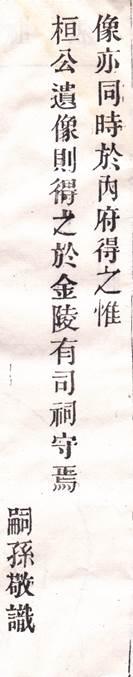 像亦同時於內府得之惟
桓公遺像則得之於金陵有司祠守焉
嗣孫敬識